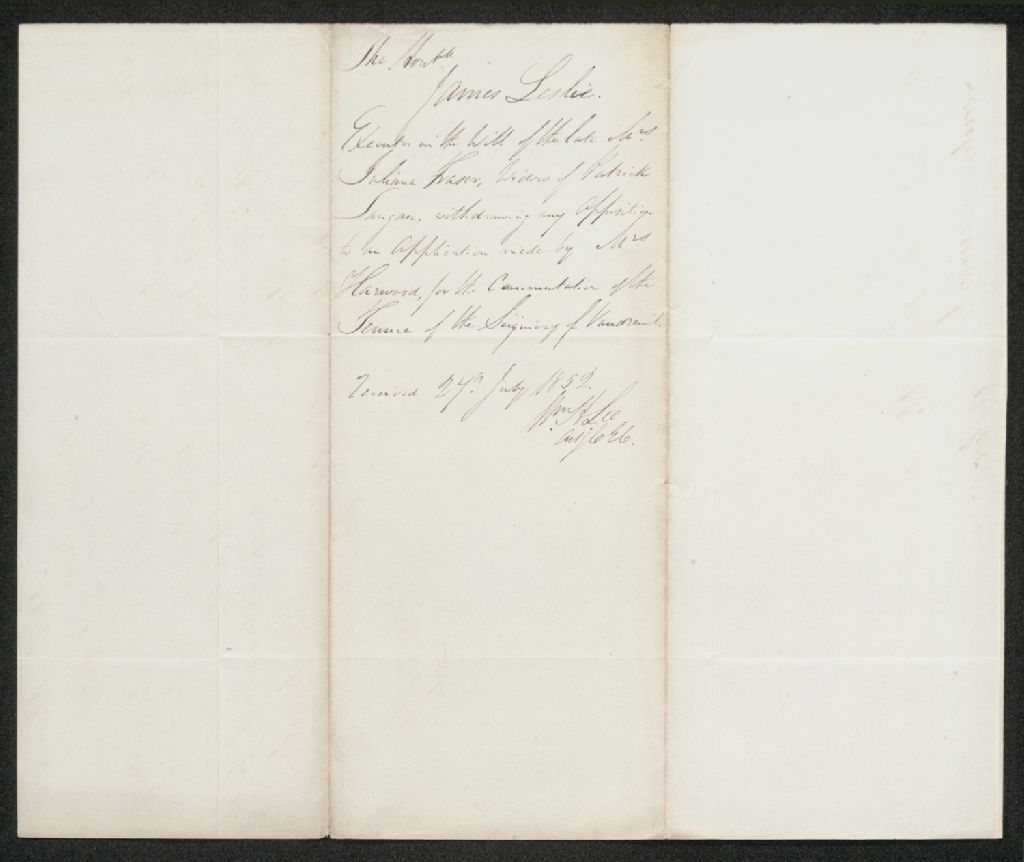 The Honble
James Leslie.
Executor in the Will of the late Mrs
Juliana Fraser, Widow of Patrick
Langan, withdrawing any Opposition
to an Application made by Mrs
Harwood, for the Commutation of the
Tenure of the Seigniory of Vaudreuil.
Received 27th July 1852.
Wm H Lee